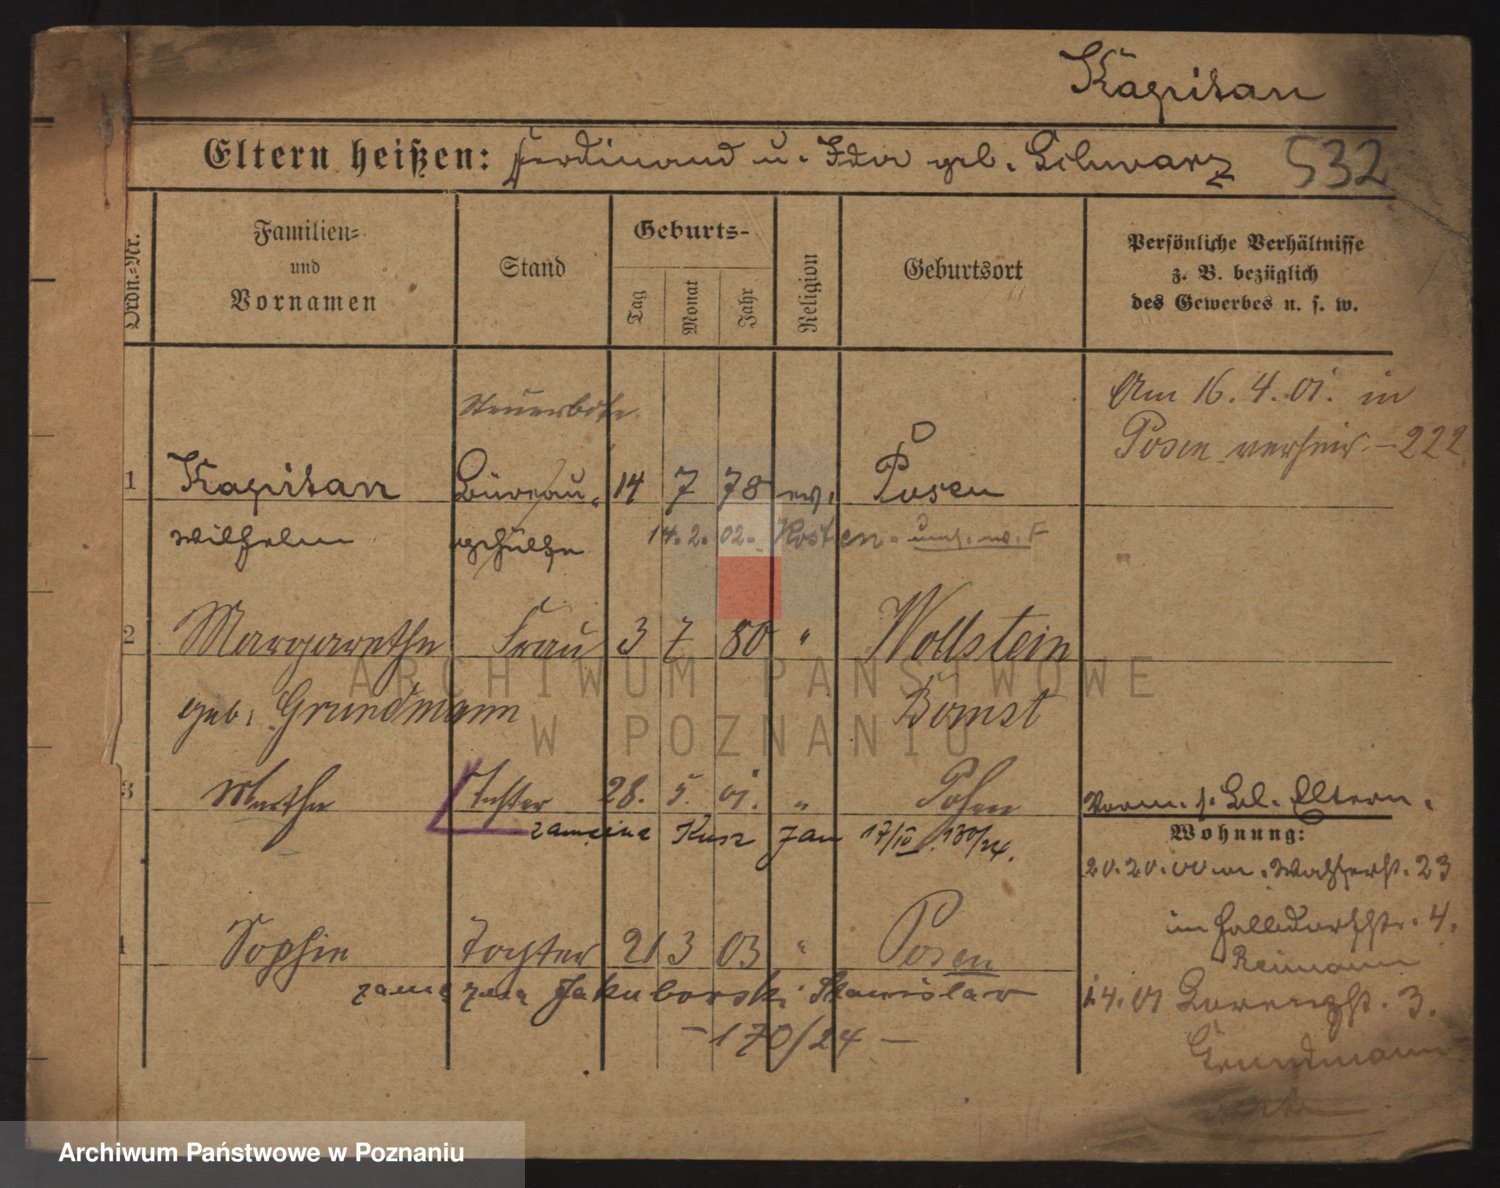 Kapitan
Eltern heißen: Ferdinand u. Ida geb. Schwarz 532
Ordn.=Nr.
Familien= und Vornamen
Stand
Geburts-
Tag
Monat
Jahr
Religion
Geburtsort
Persönliche Verhältnisse
z. B. bezüglich
des Gewerbes u. s. w.
Am 16. 4. 01. in
Posen verheir. - 222
Steuerbote
1 Kapitan Büreau- 14 7 78 ev. Posen
Wilhelm gehülfe
14. 2. 02. Kosten.
2 Margarethe Frau 3 7 80 " Wollstein
geb. Grundmann Bomst
3 Martha Tochter 28. 5. 01. " Posen
zamężna Kusz Jan 17/IV 130/24.
4 Sophie Tochter 21 3 03 " Posen
zamężna Jakuborski Stanislav
- 170/24 -
Eltern.
Wohnung:
23
in Halbdorfstr. 4.
Reimann
4. 01 3.
Grundmann
ARCHIWUM PAŃSTWOWE
W POZNANIU
Archiwum Państwowe w Poznaniu